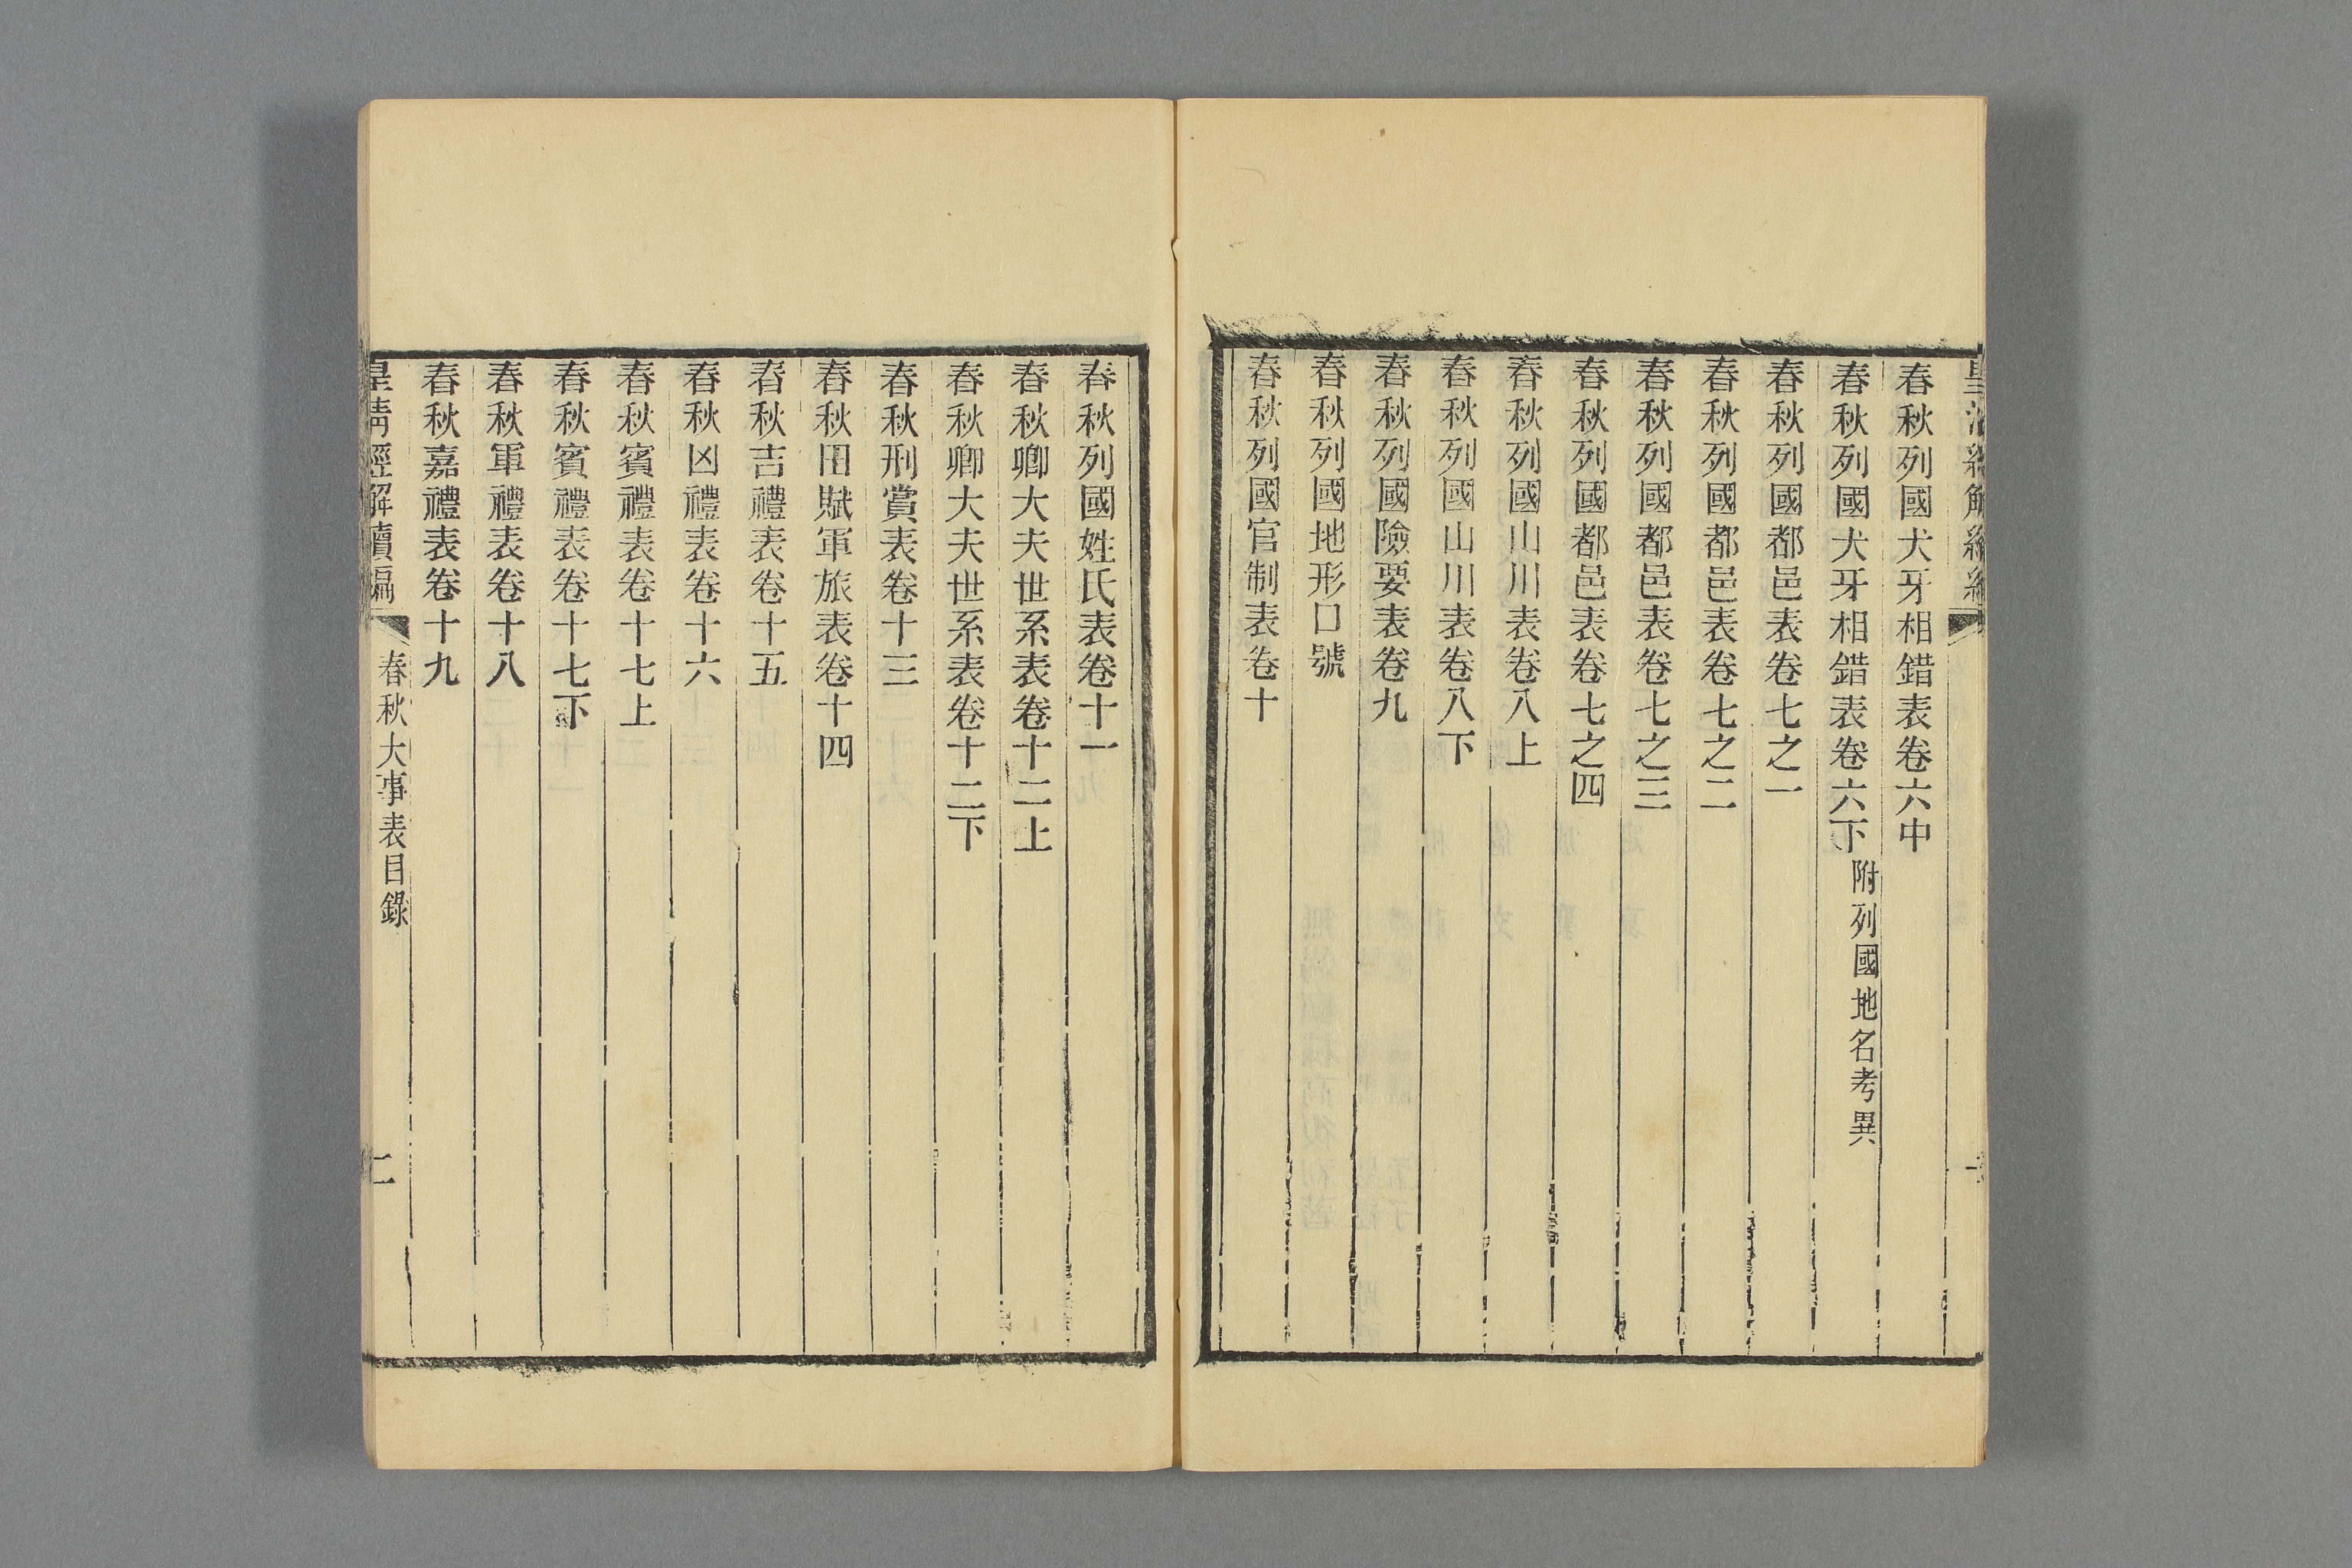 春秋列國犬牙相錯表卷六中
春秋列國犬牙相錯表卷六下 附列國地名考異
春秋列國都邑表卷七之一
春秋列國都邑表卷七之二
春秋列國都邑表卷七之三
春秋列國都邑表卷七之四
春秋列國山川表卷八上
春秋列國山川表卷八下
春秋列國險要表卷九
春秋列國地形口號
春秋列國官制表卷十
春秋列國姓氏表卷十一
春秋卿大夫世系表卷十二上
春秋卿大夫世系表卷十二下
春秋刑賞表卷十三
春秋田賦軍旅表卷十四
春秋吉禮表卷十五
春秋凶禮表卷十六
春秋賓禮表卷十七上
春秋賓禮表卷十七下
春秋軍禮表卷十八
春秋嘉禮表卷十九
皇清經解續編 春秋大事表目錄 二